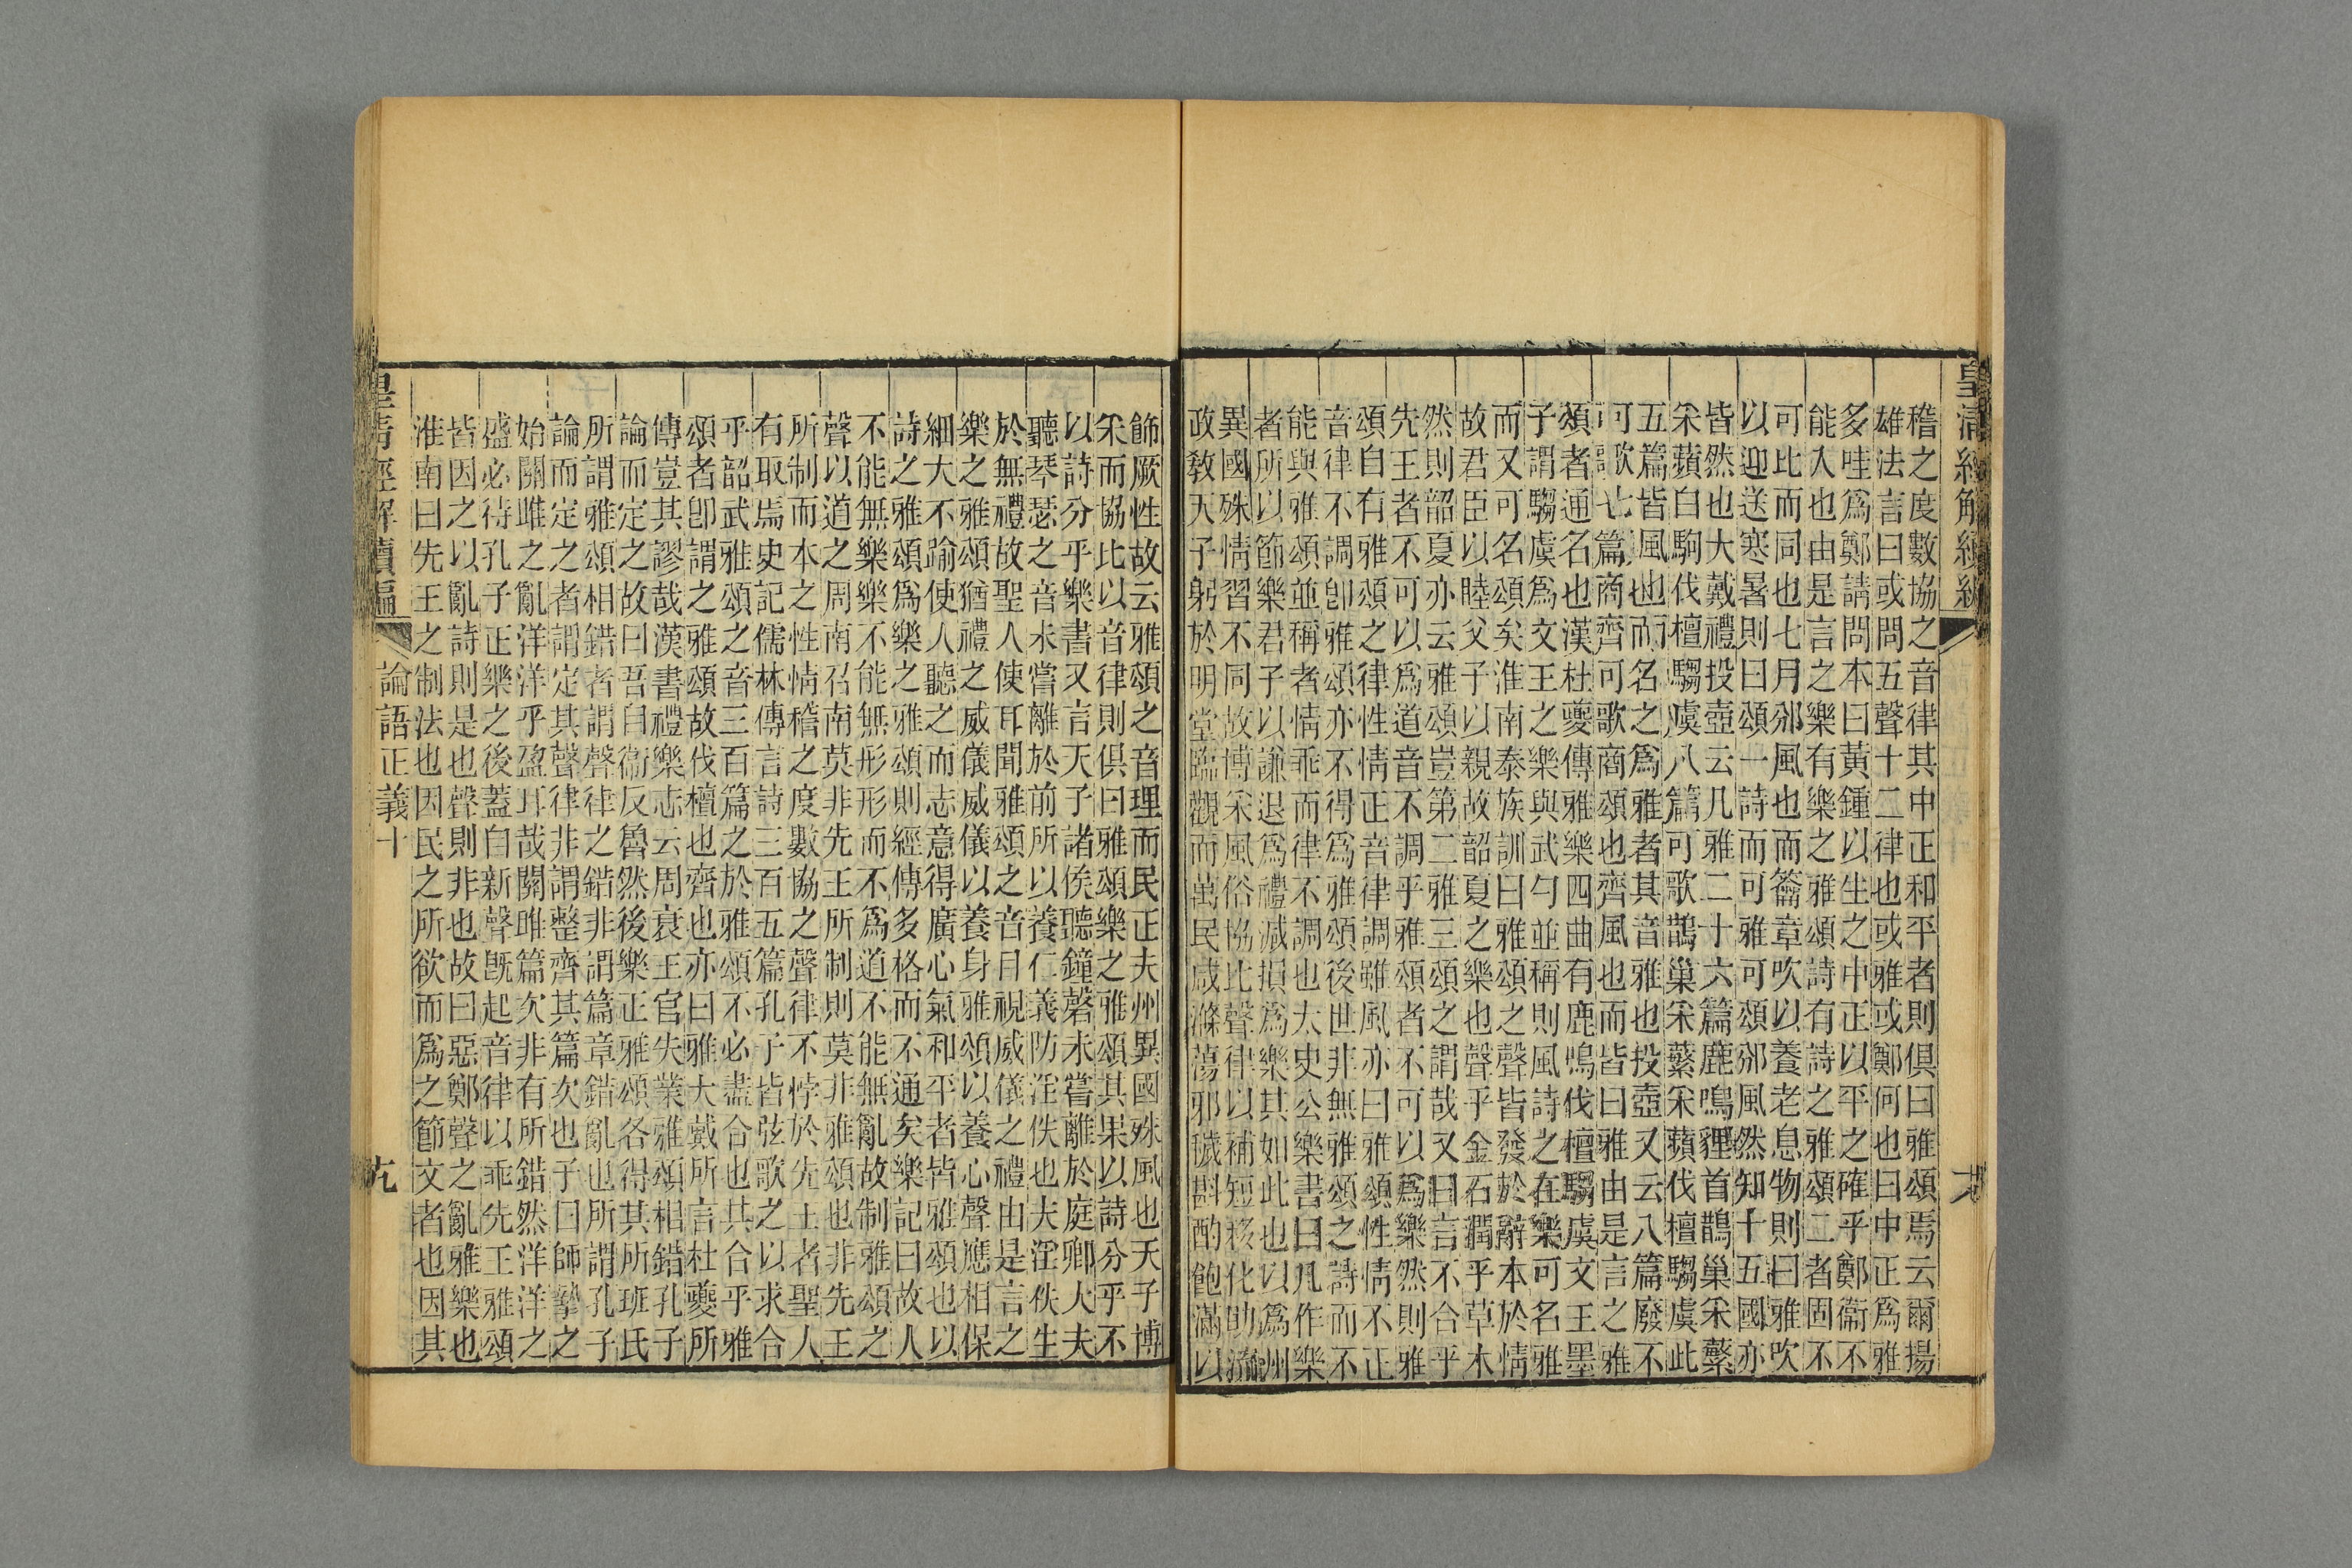 皇清經解續編
稽之度數協之音律其中正和平者則俱曰雅頌焉云爾揚
雄法言曰或問五聲十二律也或雅或鄭何也曰中正爲雅
多哇爲鄭請問本曰黃鍾以生之中正以平之確乎鄭衞不
能入也由是言之樂有樂之雅頌詩有詩之雅頌二者固不
可比而同也七月邠風也而籥章吹以養老息物則曰雅吹
以迎送寒暑則曰頌一詩而可雅可頌邠風然知十五國亦
皆然也大戴禮投壺云凡雅二十六篇鹿鳴貍首鵲巢采蘩
采蘋白駒伐檀騶虞八篇可歌鵲巢采蘩采蘋伐檀騶虞此
五篇皆風也而名之爲雅者其音雅也投壺又云八篇廢不
可歌七篇商齊可歌商頌也齊風也而皆曰雅由是言之雅
頌者通名也漢杜夔傳雅樂四曲有鹿鳴伐檀騶虞文王墨
子謂騶虞爲文王之樂與武勺並稱則風詩之在樂可名雅
而又可名頌矣淮南泰族訓曰雅頌之聲皆發於辭本於情
故君臣以睦父子以親故韶夏之樂也聲乎金石潤乎草木
然則韶夏亦云雅頌豈第二雅三頌之謂哉又曰言不合乎
先王者不可以爲道音不調乎雅頌者不可以爲樂然則雅
頌自有雅頌之律性情正音律調雖風亦曰雅頌性情不正
音律不調卽雅頌亦不得爲雅頌後世非無雅頌之詩而不
能與雅頌並稱者情乖而律不調也太史公樂書曰凡作樂
者所以節樂君子以謙退爲禮減損爲樂其如此也以爲州
異國殊情習不同故博采風俗協比聲律以補短移化助流
政教天子躬於明堂臨觀而萬民咸滌蕩邪穢斟酌飽滿以
飾厥性故云雅頌之音理而民正夫州異國殊風也天子博
采而協比以音律則俱曰雅頌樂之雅頌其果以詩分乎不
以詩分乎樂書又言天子諸侯聽鐘磬未嘗離於庭卿大夫
聽琴瑟之音未嘗離於前所以養仁義防淫佚也夫淫佚生
於無禮故聖人使耳聞雅頌之音目視威儀之禮由是言之
樂之雅頌猶禮之威儀威儀以養身雅頌以養心聲應相保
細大不踰使人聽之而志意得廣心氣和平者皆雅頌也以
詩之雅頌爲樂之雅頌則經傳多格而不通矣樂記曰故人
不能無樂樂不能無形形而不爲道不能無亂故制雅頌之
聲以道之周南召南莫非先王所制則莫非雅頌也非先王
所制而本之性情稽之度數協之聲律不悖於先王者聖人
有取焉史記儒林傳言詩三百五篇孔子皆弦歌之以求合
乎韶武雅頌之音三百篇之於雅頌不必盡合也其合乎雅
頌者卽謂之雅頌故伐檀也齊也亦曰雅大戴所言杜夔所
傳豈其謬哉漢書禮樂志云周衰王官失業雅頌相錯孔子
論而定之故曰吾自衞反魯然後樂正雅頌各得其所班氏
所謂雅頌相錯者謂聲律之錯非謂篇章錯亂也所謂孔子
論而定之者謂定其聲律非謂整齊其篇次也子曰師摯之
始關雎之亂洋洋乎盈耳哉關雎篇次非有所錯然洋洋之
盛必待孔子正樂之後蓋自新聲旣起音律以乖先王雅頌
皆因之以亂詩則是也聲則非也故曰惡鄭聲之亂雅樂也
淮南曰先王之制法也因民之所欲而爲之節文者也因其
皇清經解續編 論語正義十 九